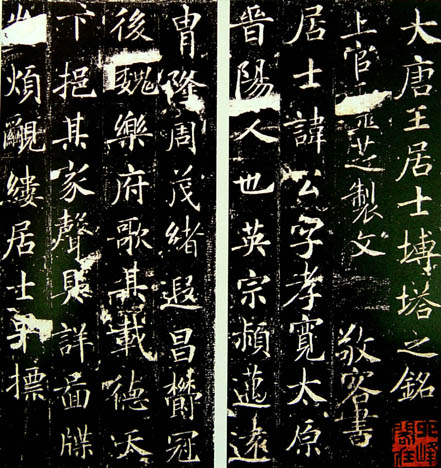 大唐王居士塼塔之銘
上官芝製文 敬客書
居士諱公字孝寬太原
晉陽人也英宗穎邁遠
胄隆周茂緒遐昌欝冠
後魏樂府歌其載德天
下挹其家聲具詳啚牒
煩覼縷居士早摽